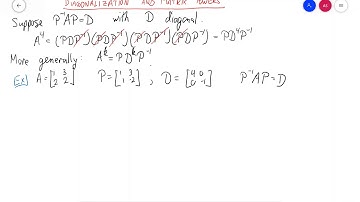 DIAGONALIZATION AND MATRIX POWERS
Suppose P⁻¹AP=D with D diagonal.
A⁴ = (PDP⁻¹)(PDP⁻¹)(PDP⁻¹)(PDP⁻¹) = PD⁴P⁻¹
More generally: Aᵏ = PDᵏP⁻¹.
Ex) A = [1 3; 2 2] P = [1 3; 1 -2], D = [4 0; 0 -1] P⁻¹AP=D